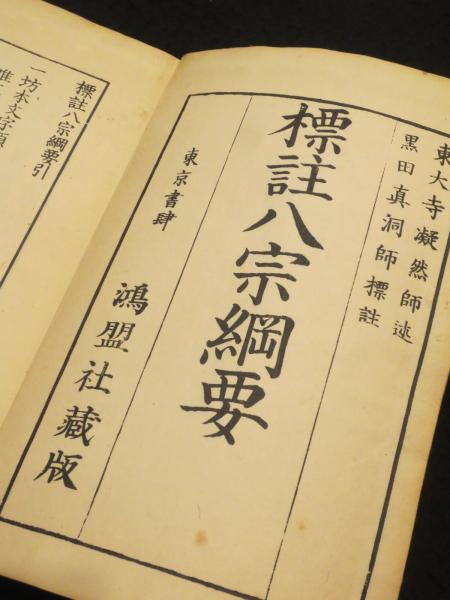 東大寺凝然師述
黒田真洞師標註
標註八宗綱要
東京書肆
鴻盟社藏版
標註八宗綱要引
一坊本文字